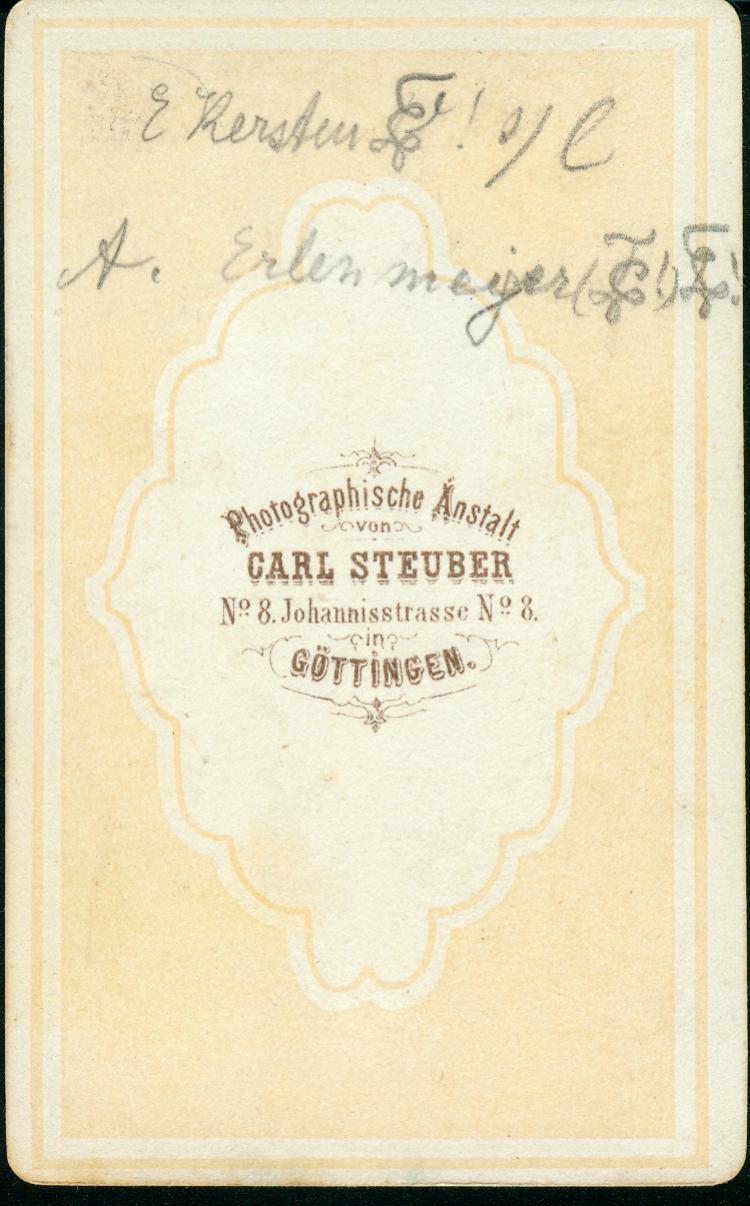 E Kersten ! s/ C
A. Erlenmeyer ( !) !
Photographische Anstalt
von
CARL STEUBER
Nº 8. Johannisstrasse Nº 8.
in
GÖTTINGEN.